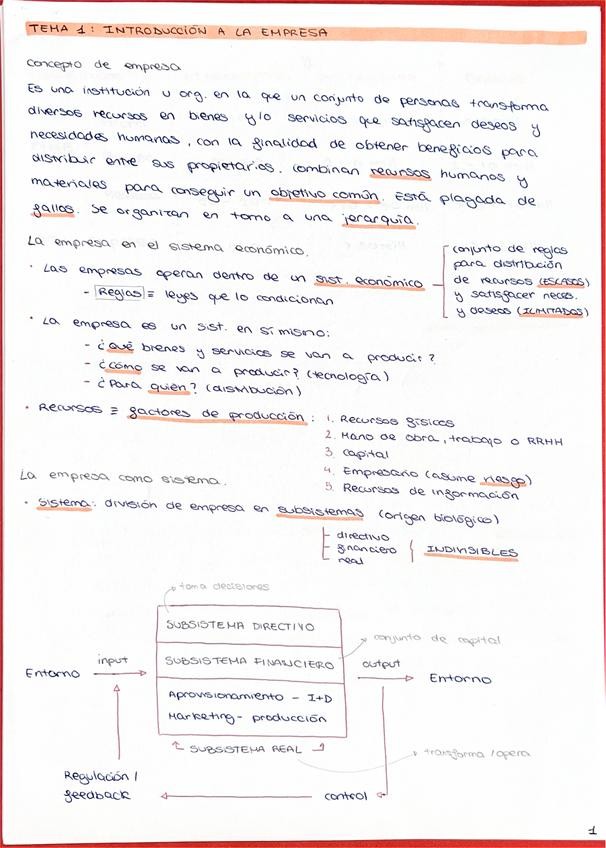 TEMA 1: INTRODUCCIÓN A LA EMPRESA
concepto de empresa
Es una institución u org. en la que un conjunto de personas transforma
diversos recursos en bienes y/o servicios que satisfacen deseos y
necesidades humanas, con la finalidad de obtener beneficios para
distribuir entre sus propietarios. combinan recursos humanos y
materiales para conseguir un objetivo común. Está plagada de
fallos. Se organizan en torno a una jerarquía.
La empresa en el sistema económico.
· Las empresas operan dentro de un sist. económico
- Reglas ≡ leyes que lo condicionan
conjunto de reglas
para distribución
de recursos (ESCASOS)
y satisfacer neces.
y deseos (ILIMITADOS)
· La empresa es un sist. en sí mismo:
- ¿Qué bienes y servicios se van a producir?
- ¿cómo se van a producir? (tecnología)
- ¿Para quién? (distribución)
· Recursos ≡ factores de producción:
1. Recursos físicos
2. Mano de obra, trabajo o RRHH
3. capital
4. Empresario (asume riesgo)
5. Recursos de información
La empresa como sistema.
· Sistema: división de empresa en subsistemas (origen biológico)
directivo
financiero
real
INDIVISIBLES
toma decisiones
SUBSISTEMA DIRECTIVO
conjunto de capital
SUBSISTEMA FINANCIERO
Entorno
input
output
Entorno
Aprovisionamiento - I+D
Marketing - producción
SUBSISTEMA REAL
transforma / opera
Regulación /
feedback
control
1